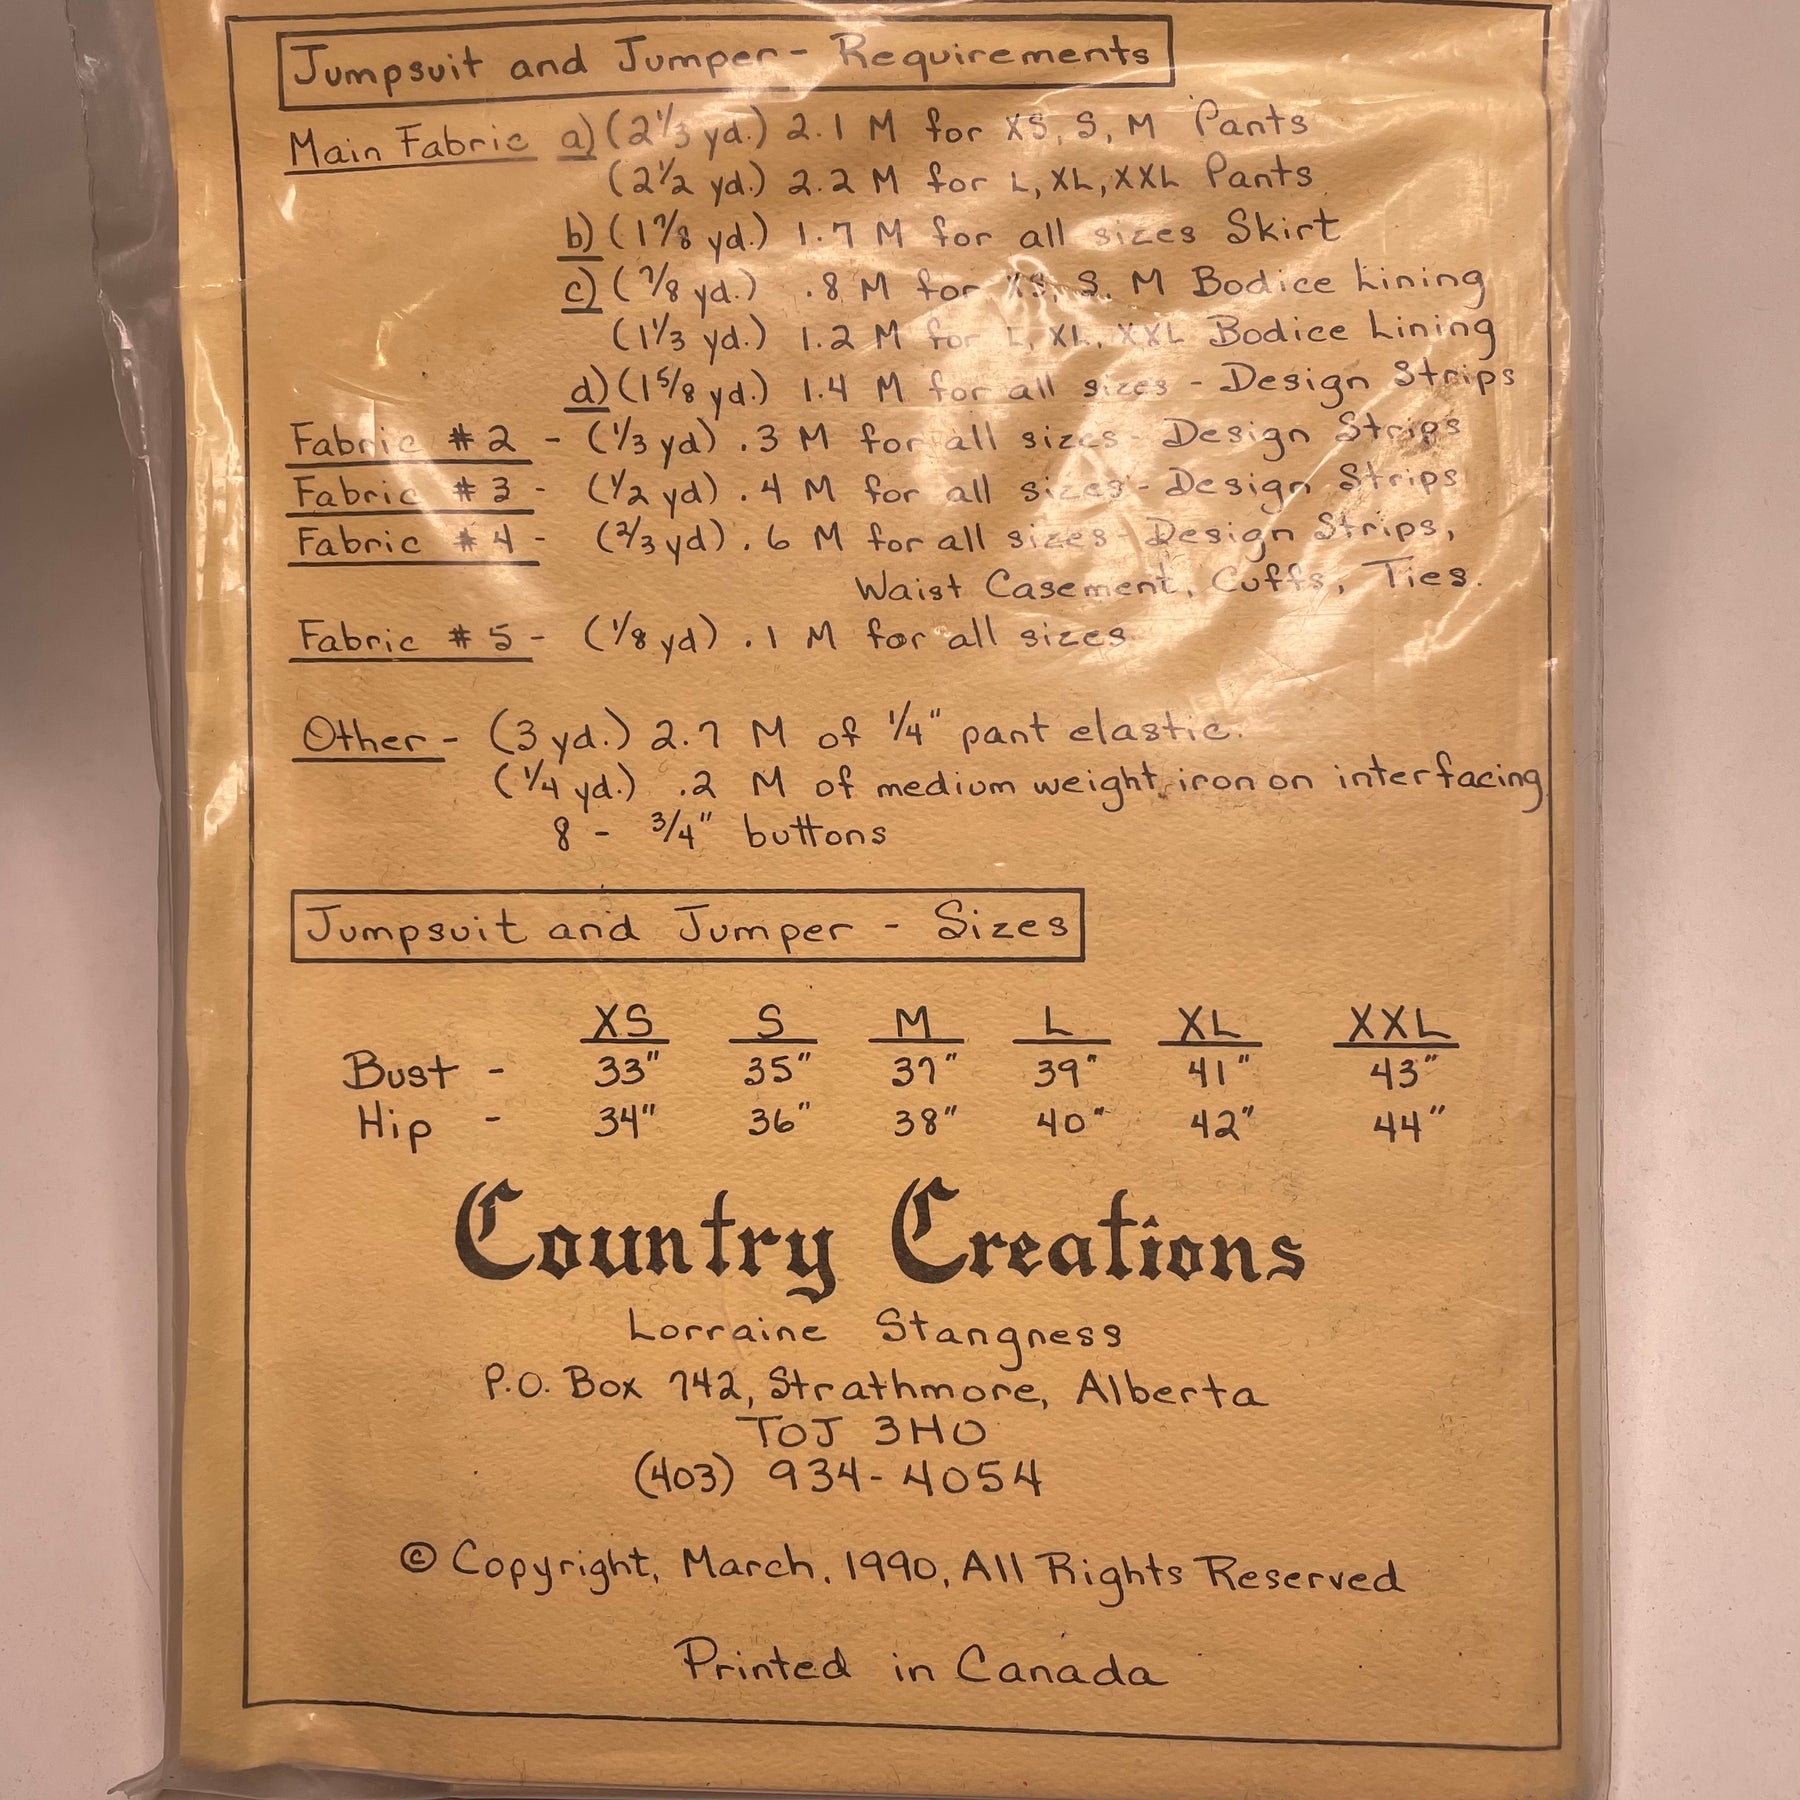 Jumpsuit and Jumper - Requirements
Main Fabric a) (2 1/3 yd.) 2.1 M for XS, S, M Pants
(2 1/2 yd.) 2.2 M for L, XL, XXL Pants
b) (1 7/8 yd.) 1.7 M for all sizes Skirt
c) (7/8 yd.) .8 M for XS, S, M Bodice Lining
(1 1/3 yd.) 1.2 M for L, XL, XXL Bodice Lining
d) (1 5/8 yd.) 1.4 M for all sizes - Design Strips
Fabric #2 - (1/3 yd) .3 M for all sizes - Design Strips
Fabric #3 - (1/2 yd) .4 M for all sizes - Design Strips
Fabric #4 - (2/3 yd) .6 M for all sizes - Design Strips,
Waist Casement, Cuffs, Ties.
Fabric #5 - (1/8 yd) .1 M for all sizes
Other - (3 yd.) 2.7 M of 1/4" pant elastic.
(1/4 yd.) .2 M of medium weight iron on interfacing
8 - 3/4" buttons
Jumpsuit and Jumper - Sizes
XS S M L XL XXL
Bust - 33" 35" 37" 39" 41" 43"
Hip - 34" 36" 38" 40" 42" 44"
Country Creations
Lorraine Stangness
P.O. Box 742, Strathmore, Alberta
T0J 3H0
(403) 934-4054
© Copyright, March, 1990, All Rights Reserved
Printed in Canada